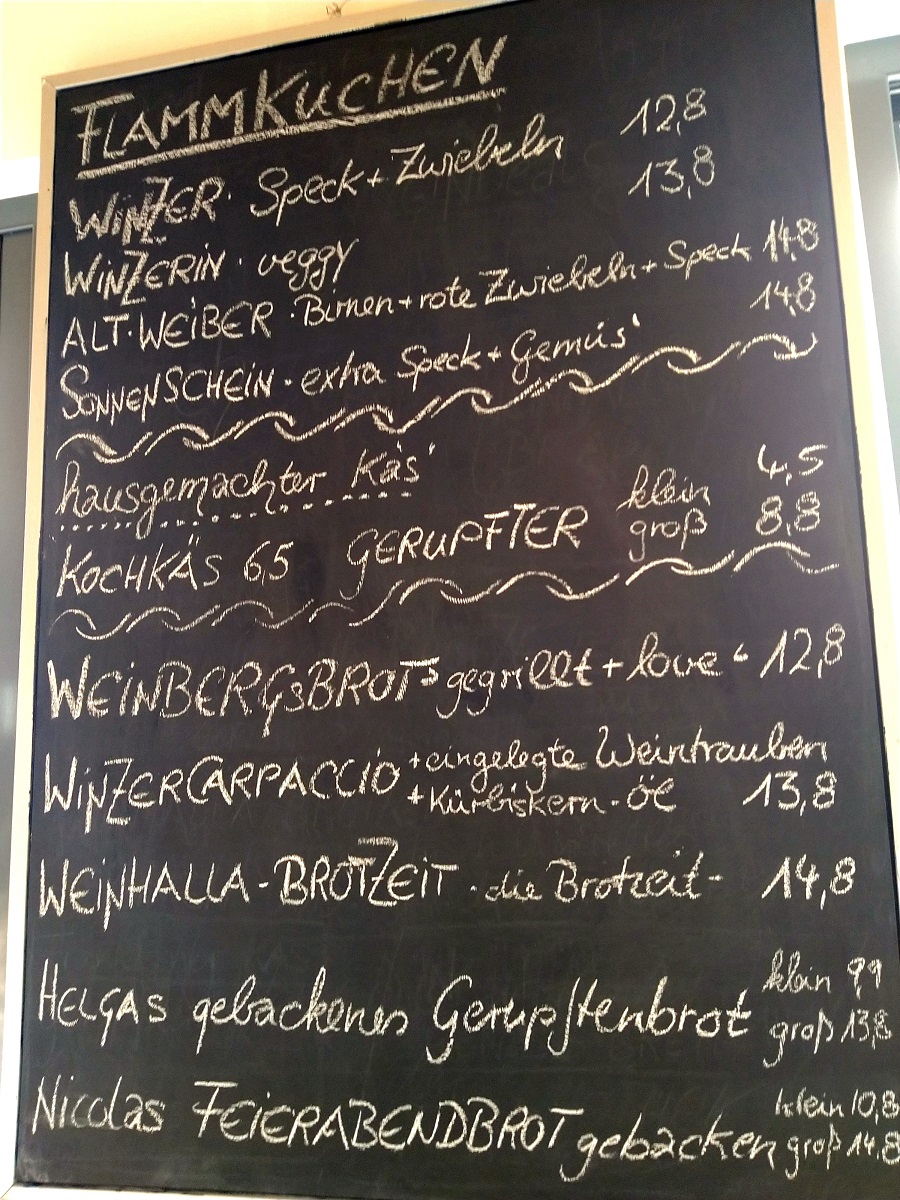 FLAMMKUCHEN
WINZER · Speck + Zwiebeln 12,8
WINZERIN · veggy 13,8
ALT·WEIBER · Birnen + rote Zwiebeln + Speck 14,8
SONNENSCHEIN · extra Speck + Gemüs' 14,8
hausgemachter Käs'
KOCHKÄS 6,5 GERUPFTER klein 4,5
groß 8,8
WEINBERGSBROT gegrillt + love 12,8
WINZERCARPACCIO + eingelegte Weintrauben
+ Kürbiskern-öl 13,8
WEINHALLA - BROTZEIT · die Brotzeit - 14,8
HELGAS gebackenes Gerupftenbrot klein 9,9
groß 13,8
Nicolas FEIERABENDBROT gebacken klein 10,8
groß 14,8